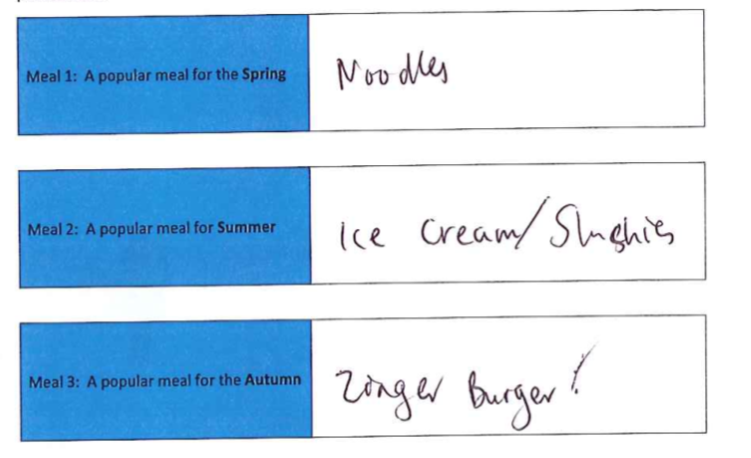 Meal 1: A popular meal for the Spring
Noodles
Meal 2: A popular meal for Summer
Ice Cream/Slushies
Meal 3: A popular meal for the Autumn
Zinger Burger!